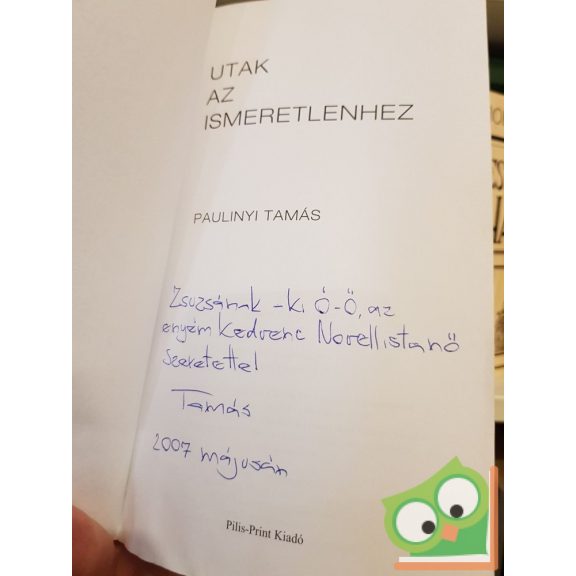 UTAK
AZ
ISMERETLENHEZ
PAULINYI TAMÁS
Zsuzsának - ki Ő-Ő, az
enyém kedvenc Novellistanő
szeretettel
Tamás
2007 májusán
Pilis-Print Kiadó